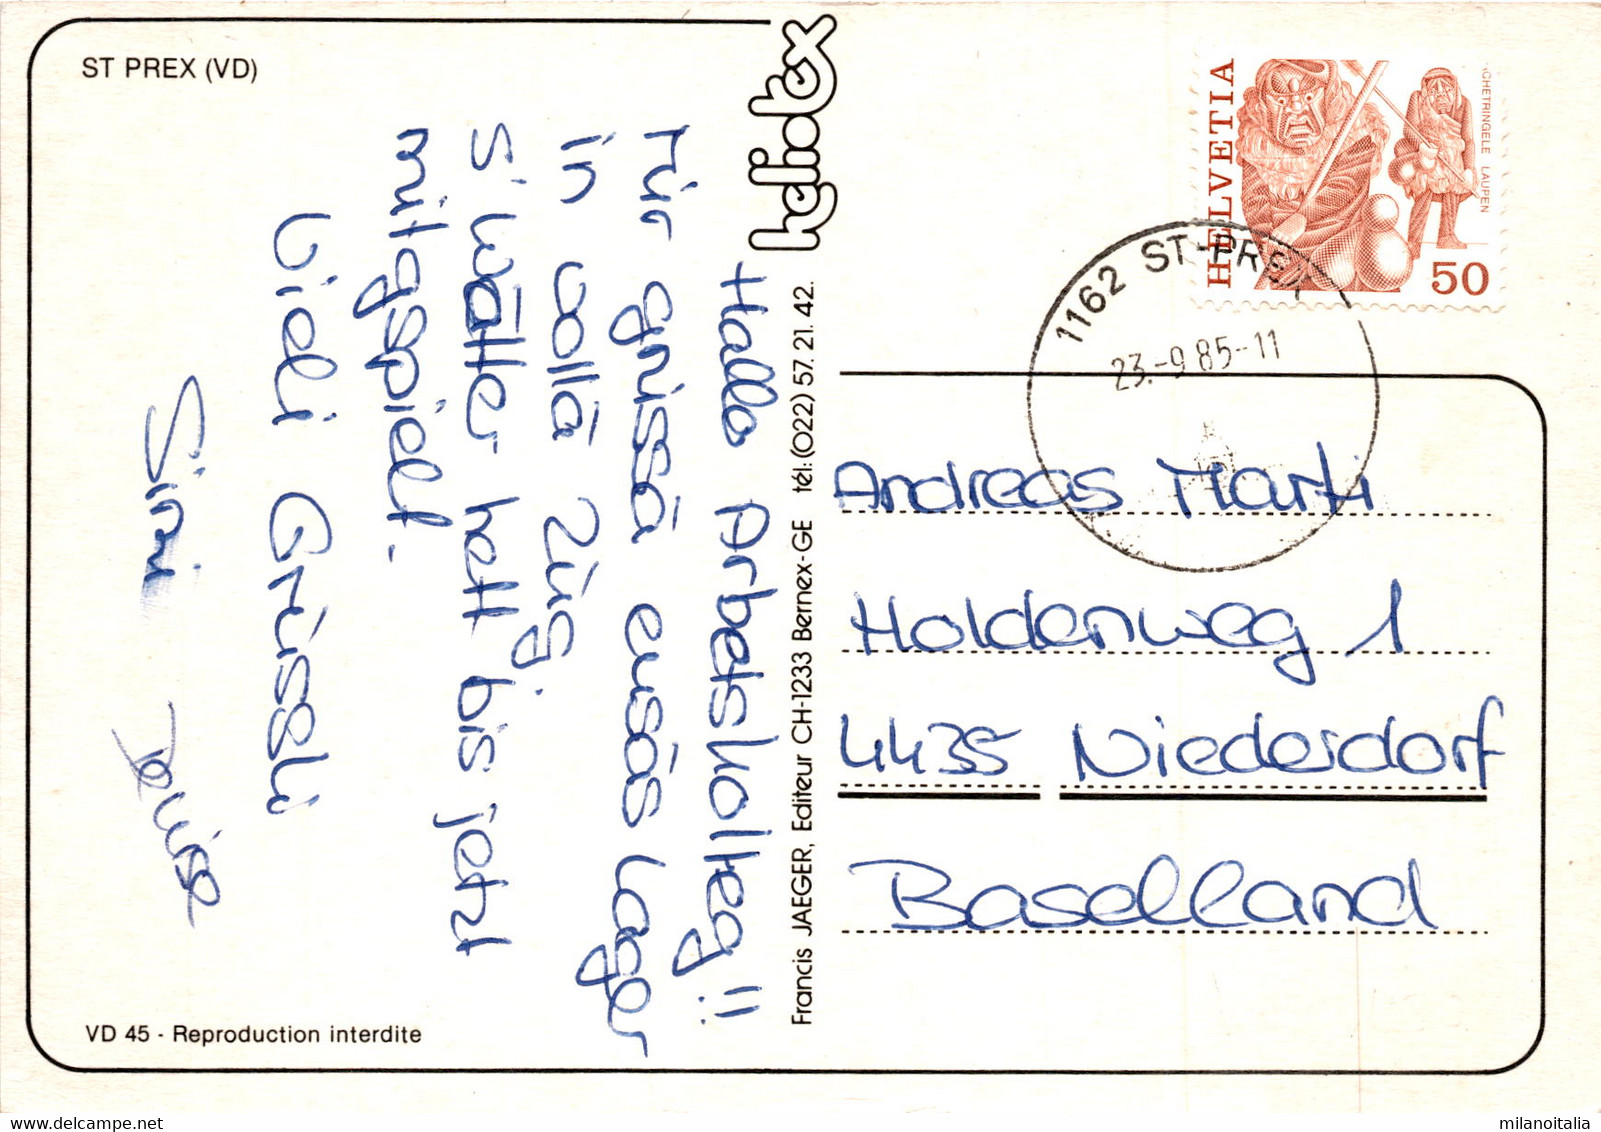 ST PREX (VD)
Hallo Arbetskolleg!!
Mir grüssä eusäs Lager
in vollä Züg.
s'Wätter hett bis jetzt
mitgspielt.
Vieli Grüssli
Simi Denise
VD 45 - Reproduction interdite
heliotex
Francis JAEGER, Editeur CH-1233 Bernex-GE tél:(022) 57. 21. 42.
HELVETIA
CHETRINGELE LAUPEN
50
1162 ST-PREX
23.-9 85-11
Andreas Marti
Holdenweg 1
4435 Niederdorf
Baselland
milanoitalia